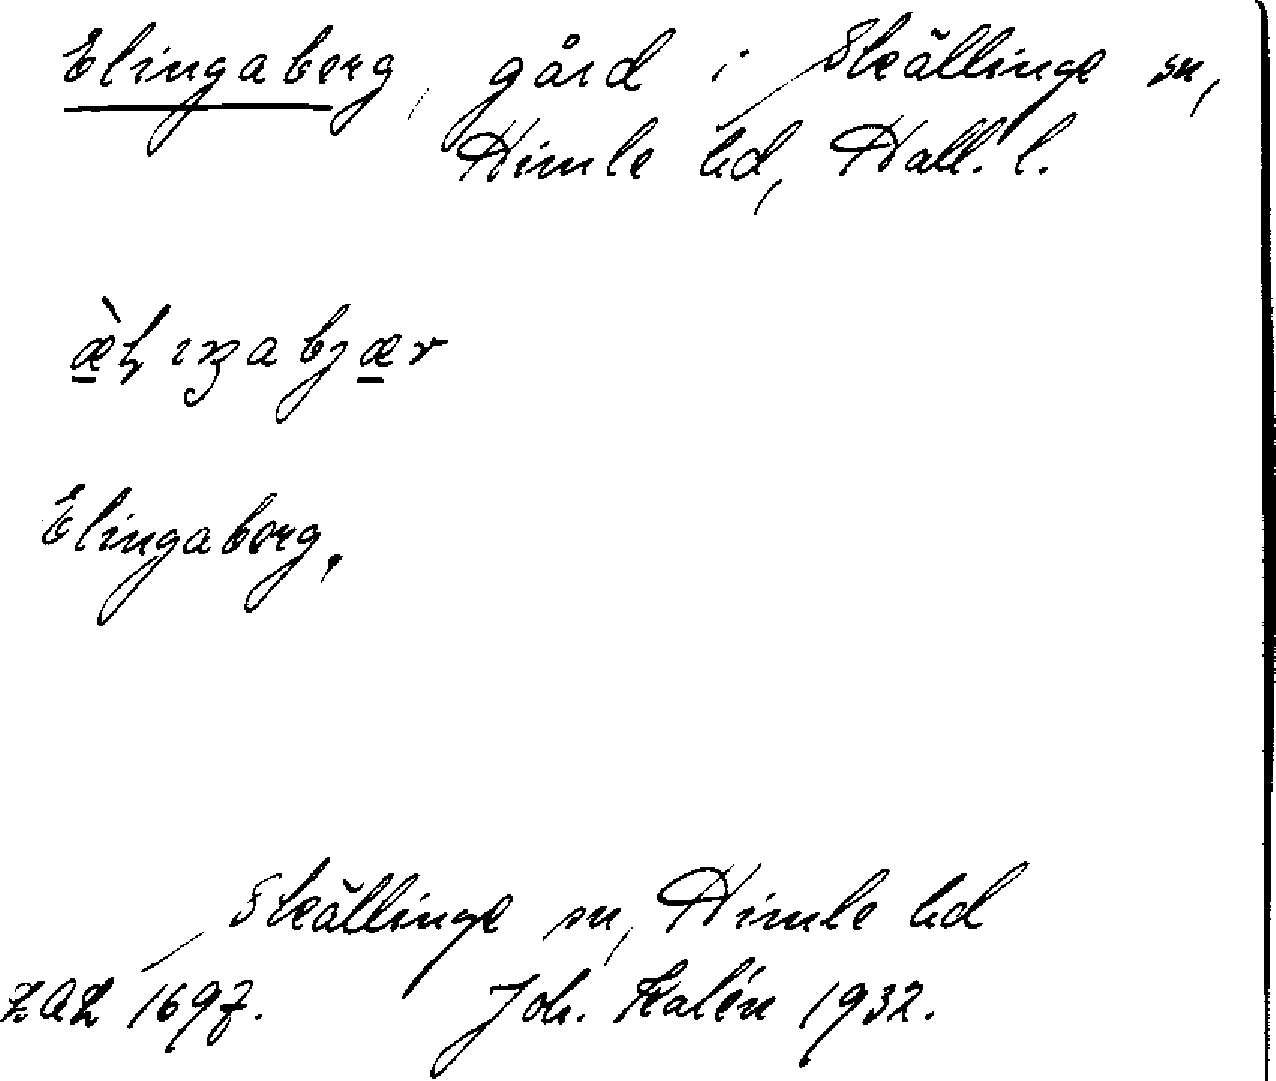 Elingaberg, gård i Skällinge sn,
Himle hd, Hall. l.
æ̀lıŋabjær
Elingaborg.
Skällinge sn, Himle hd
1697. Joh. Kalén 1932.